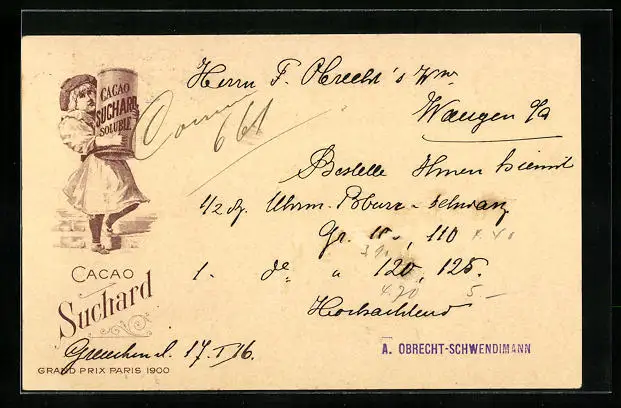 CACAO
SUCHARD
SOLUBLE
Herrn F. Obrecht's Wwe.
Wangen a/A
661
Bestelle Ihnen hiemit
1/2 dz.
Gr. 110
1. do " 120, 125.
4.20 5.—
Hochachtend
CACAO
Suchard
Grenchen d. 17. I 16.
A. OBRECHT-SCHWENDIMANN
GRAND PRIX PARIS 1900